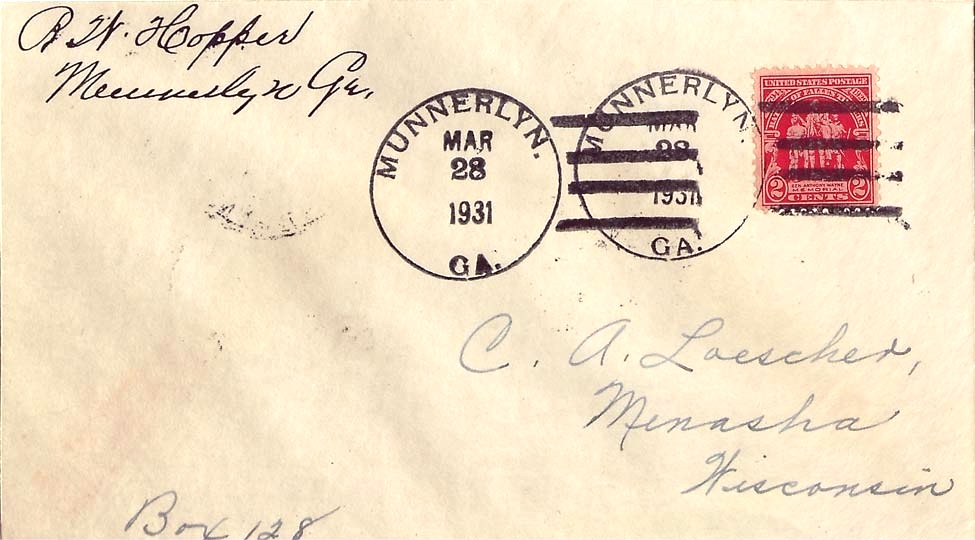 R W. Hopper
Munnerlyn Ga.
MUNNERLYN.
MAR
28
1931
GA.
MUNNERLYN.
MAR
28
1931
GA.
UNITED STATES POSTAGE
OF FALLEN
GEN. ANTHONY WAYNE
MEMORIAL
2 CENTS 2
C. A. Loescher,
Menasha
Wisconsin
Box 128